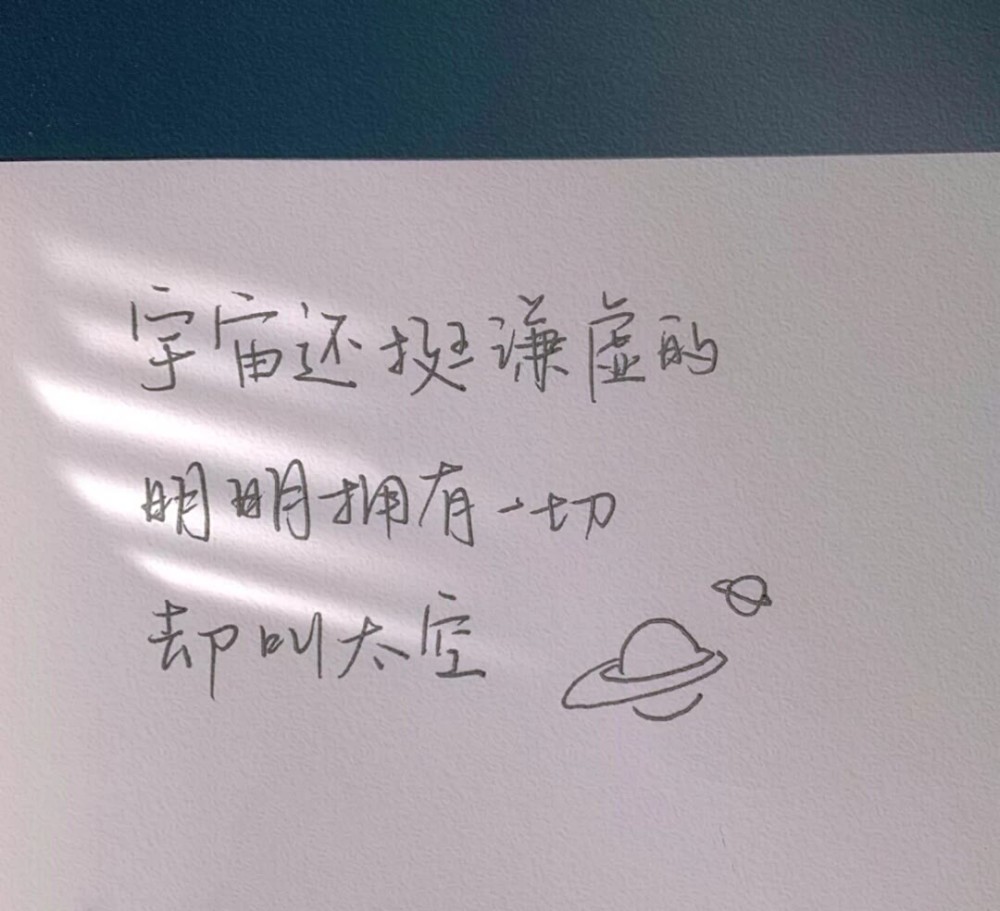 宇宙还挺谦虚的
明明拥有一切
却叫太空